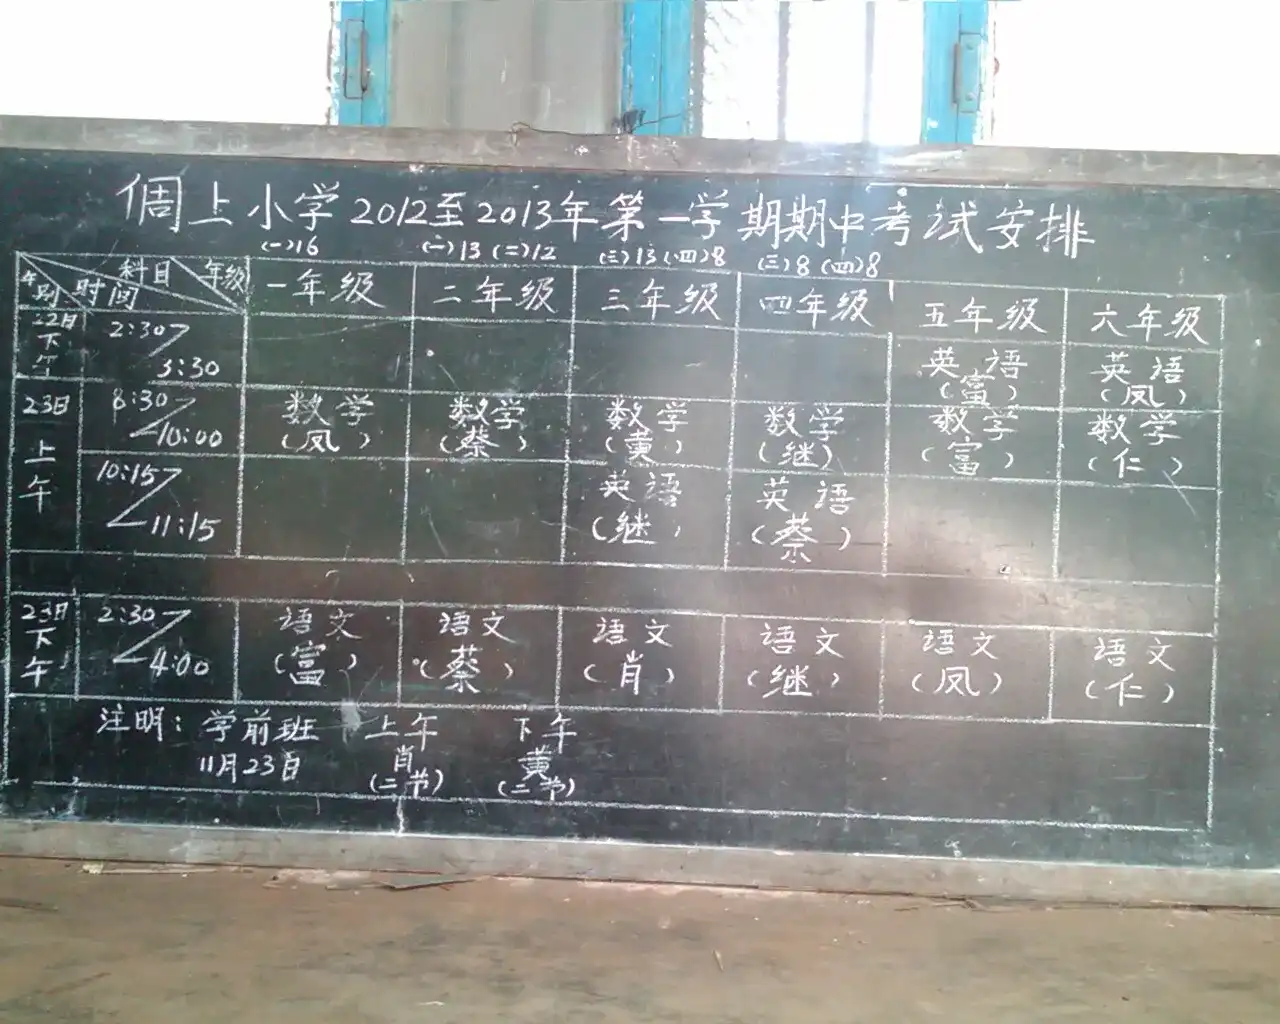 倜上小学2012至2013年第一学期期中考试安排
(一)16 (一)13 (二)12 (三)13 (四)8 (三)8 (四)8
科目 年级 时间 一年级 二年级 三年级 四年级 五年级 六年级
22日下午 2:30 3:30 英语(富) 英语(凤)
23日上午 8:30 10:00 数学(凤) 数学(蔡) 数学(黄) 数学(继) 数学(富) 数学(仁)
10:15 11:15 英语(继) 英语(蔡)
23日下午 2:30 4:00 语文(富) 语文(蔡) 语文(肖) 语文(继) 语文(凤) 语文(仁)
注明：学前班 上午 下午
11月23日 肖 黄
(二节) (二节)